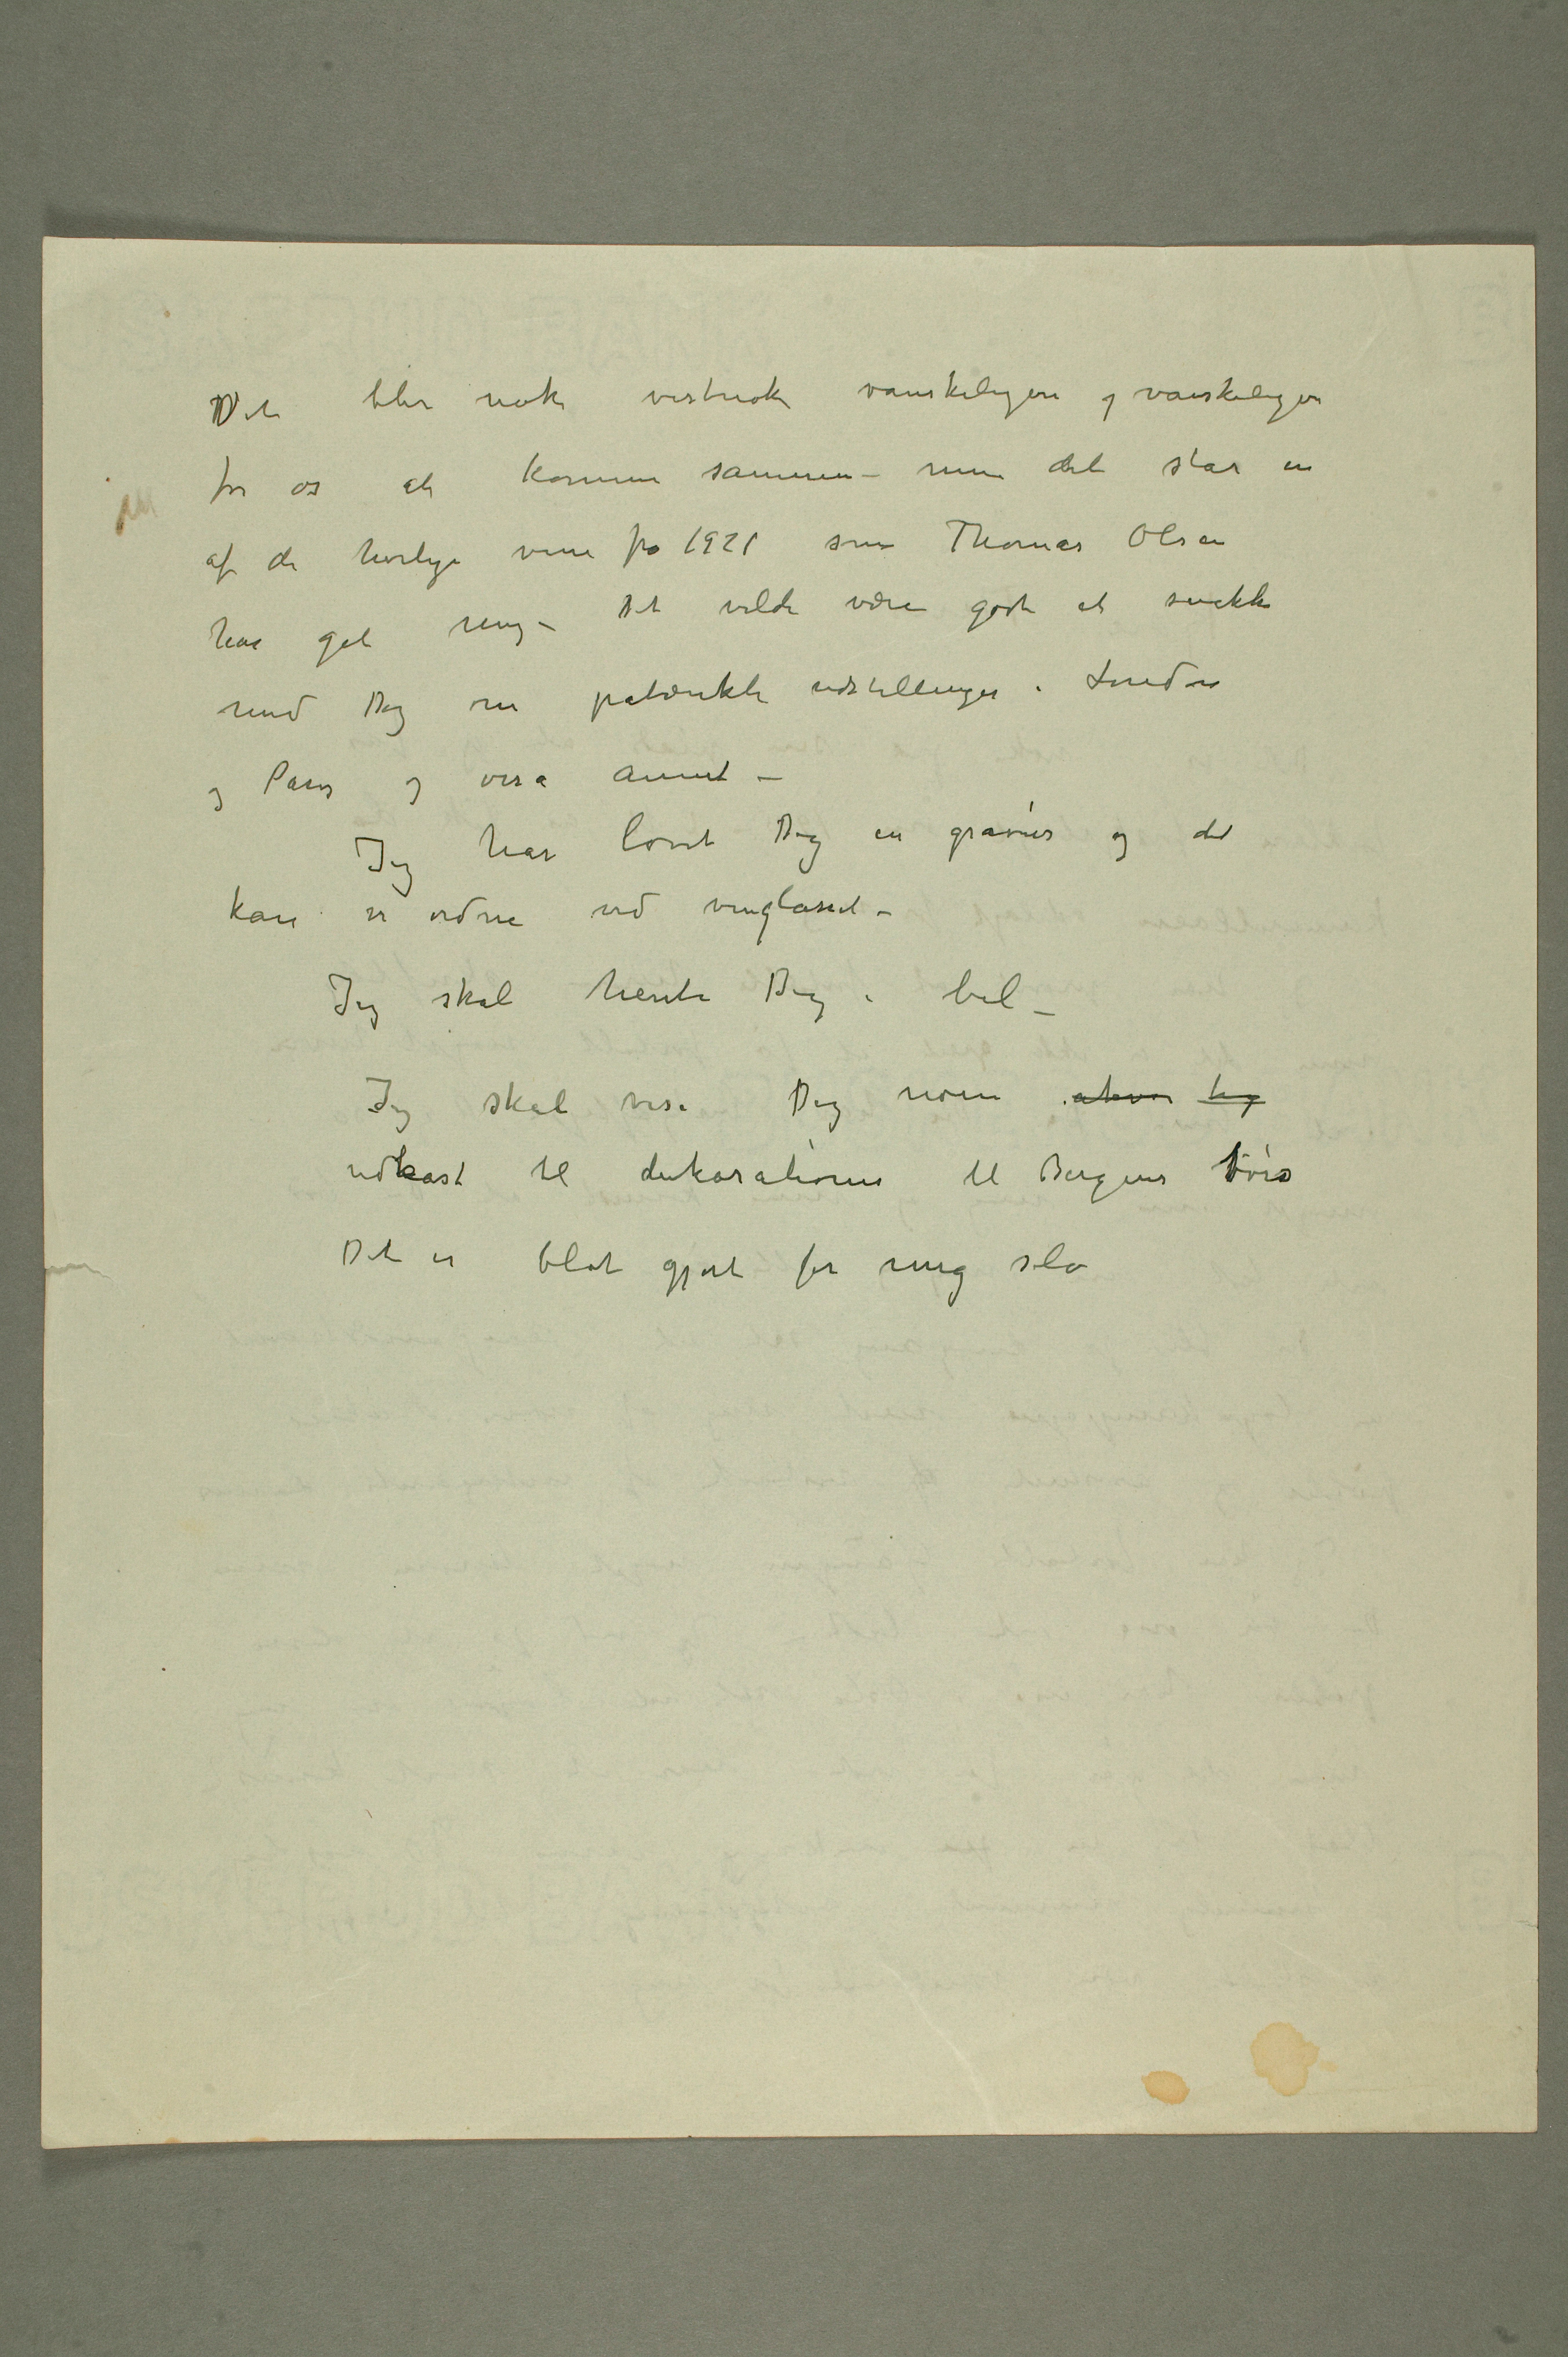 Det blir nok vistnok vanskeligere og vanskeligere
for os at komme sammen – men det står en
af de herlige vine fra 1921 som Thomas Olsen
har get mig – Det vilde være godt at snakke
med Dig om påtænkte udstillinger i London
og Paris og vist annet –
Jeg har lovet Dig en gravúr og det
kan vi ordne ved vinglasset –
Jeg skal hente Dig i bil –
Jeg skal vise Dig noen
udkast til dekorationer til Bergens Börs
Det er blot gjort for mig selv